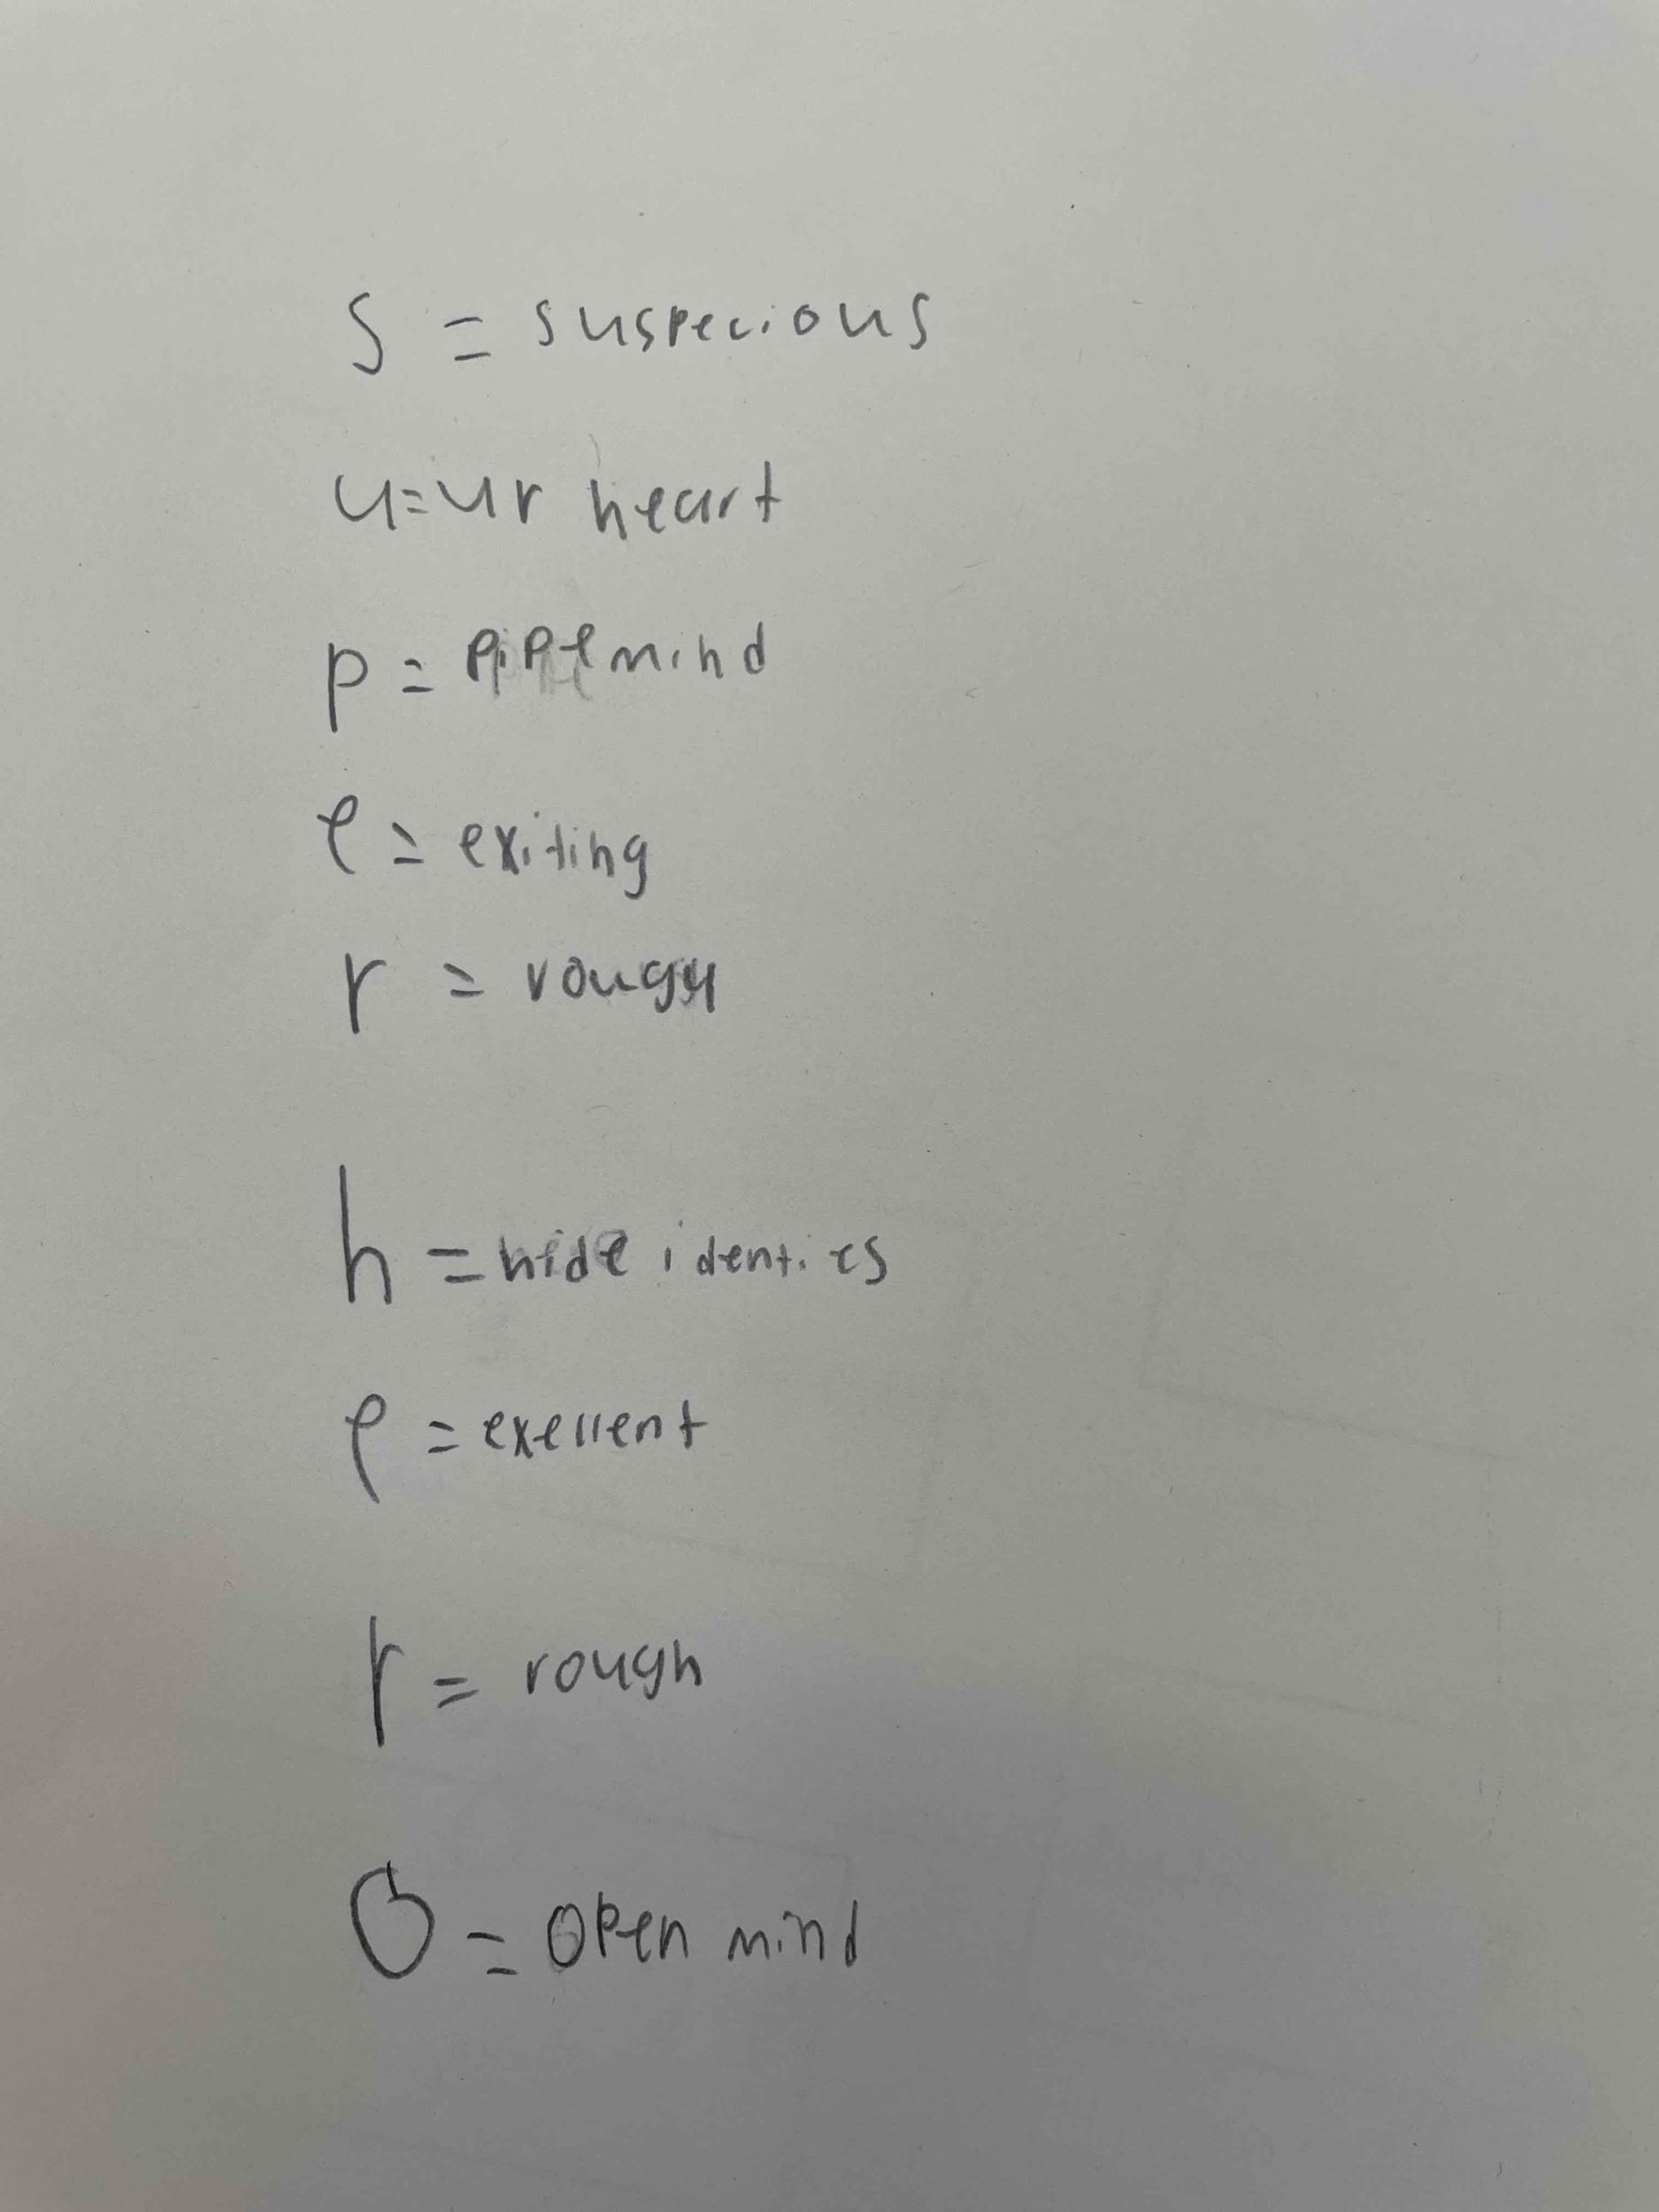 s = suspecious
u=ur heart
p = pipe mind
e = exiting
r = rough
h = hide identies
e = exellent
r = rough
O = open mind